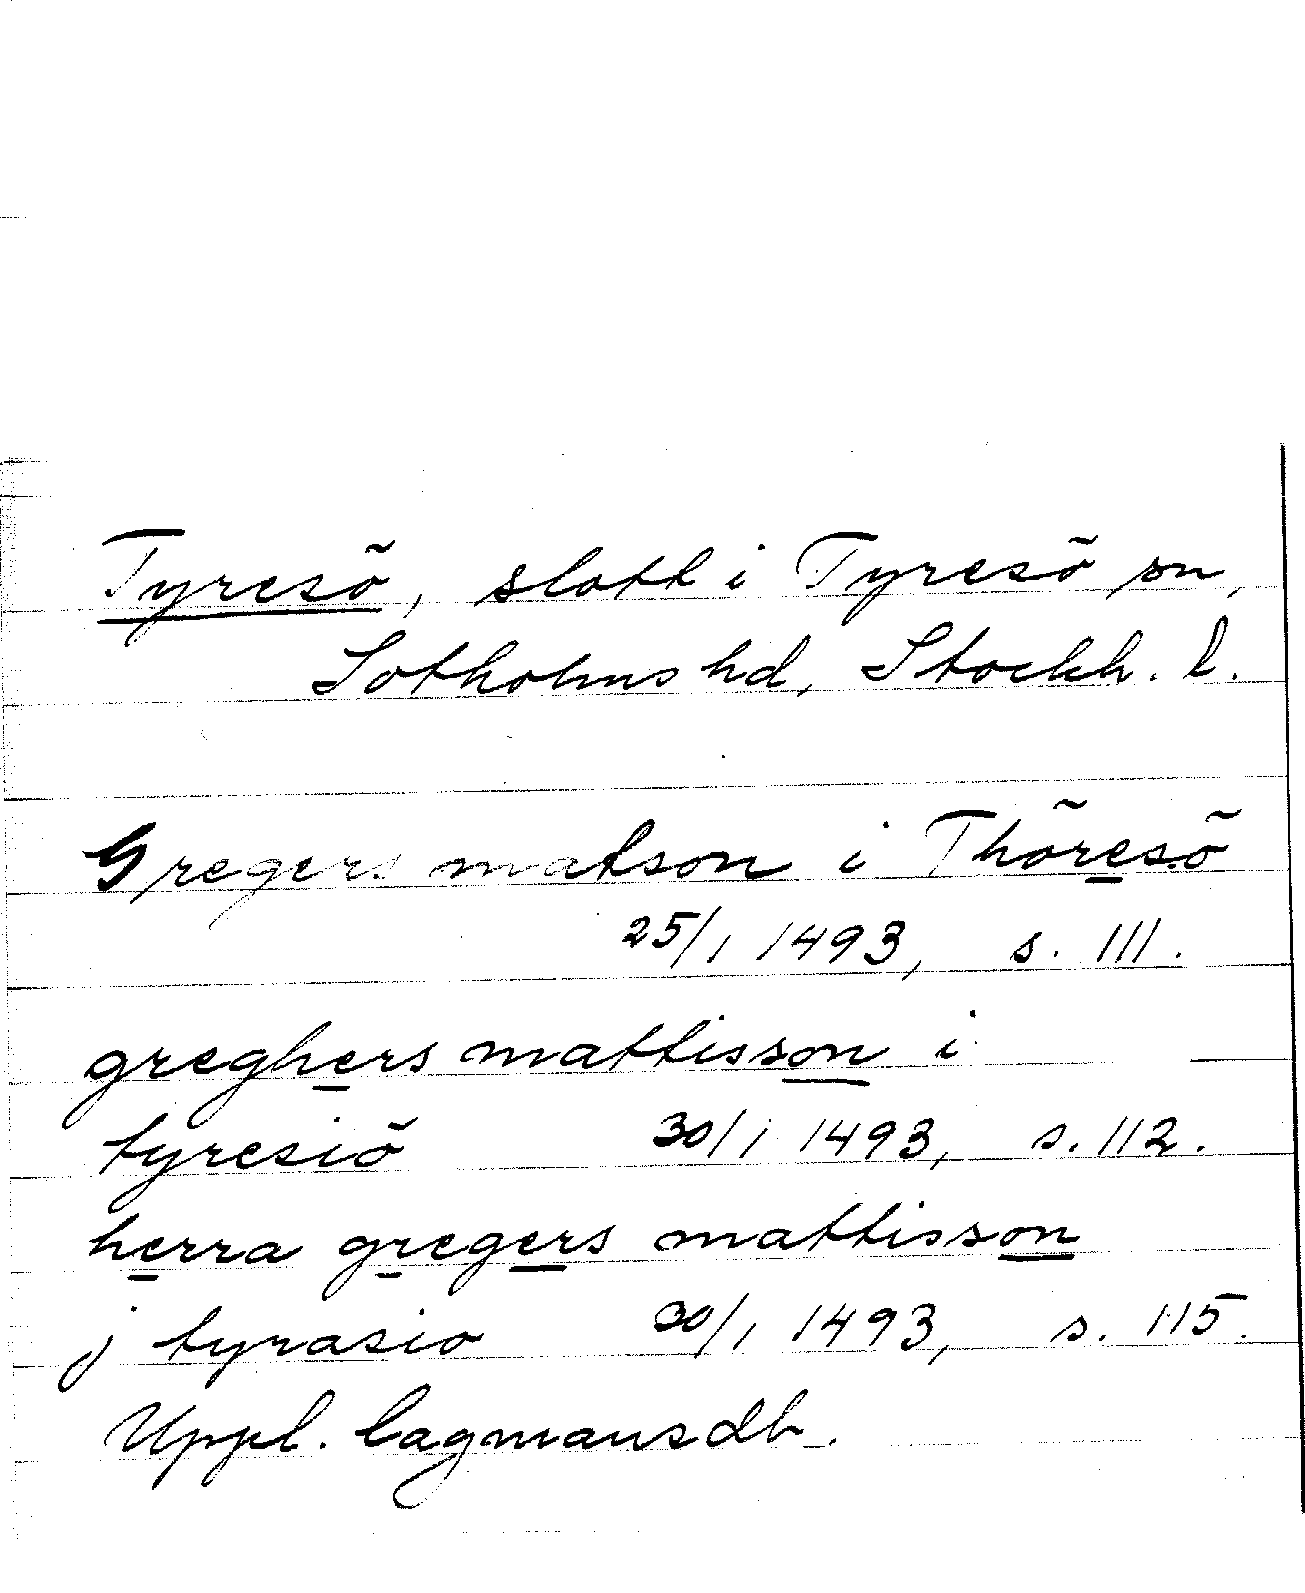 Tyresö, slott i Tyresö sn,
Sotholms hd, Stockh. l.
Gregers matson i Thöresö
25/1 1493, s. 111.
greghers mattisson i
tyresiö 30/1 1493, s. 112.
herra gregers mattisson
j tyrasio 30/1 1493, s. 115.
Uppl. lagmansdb.